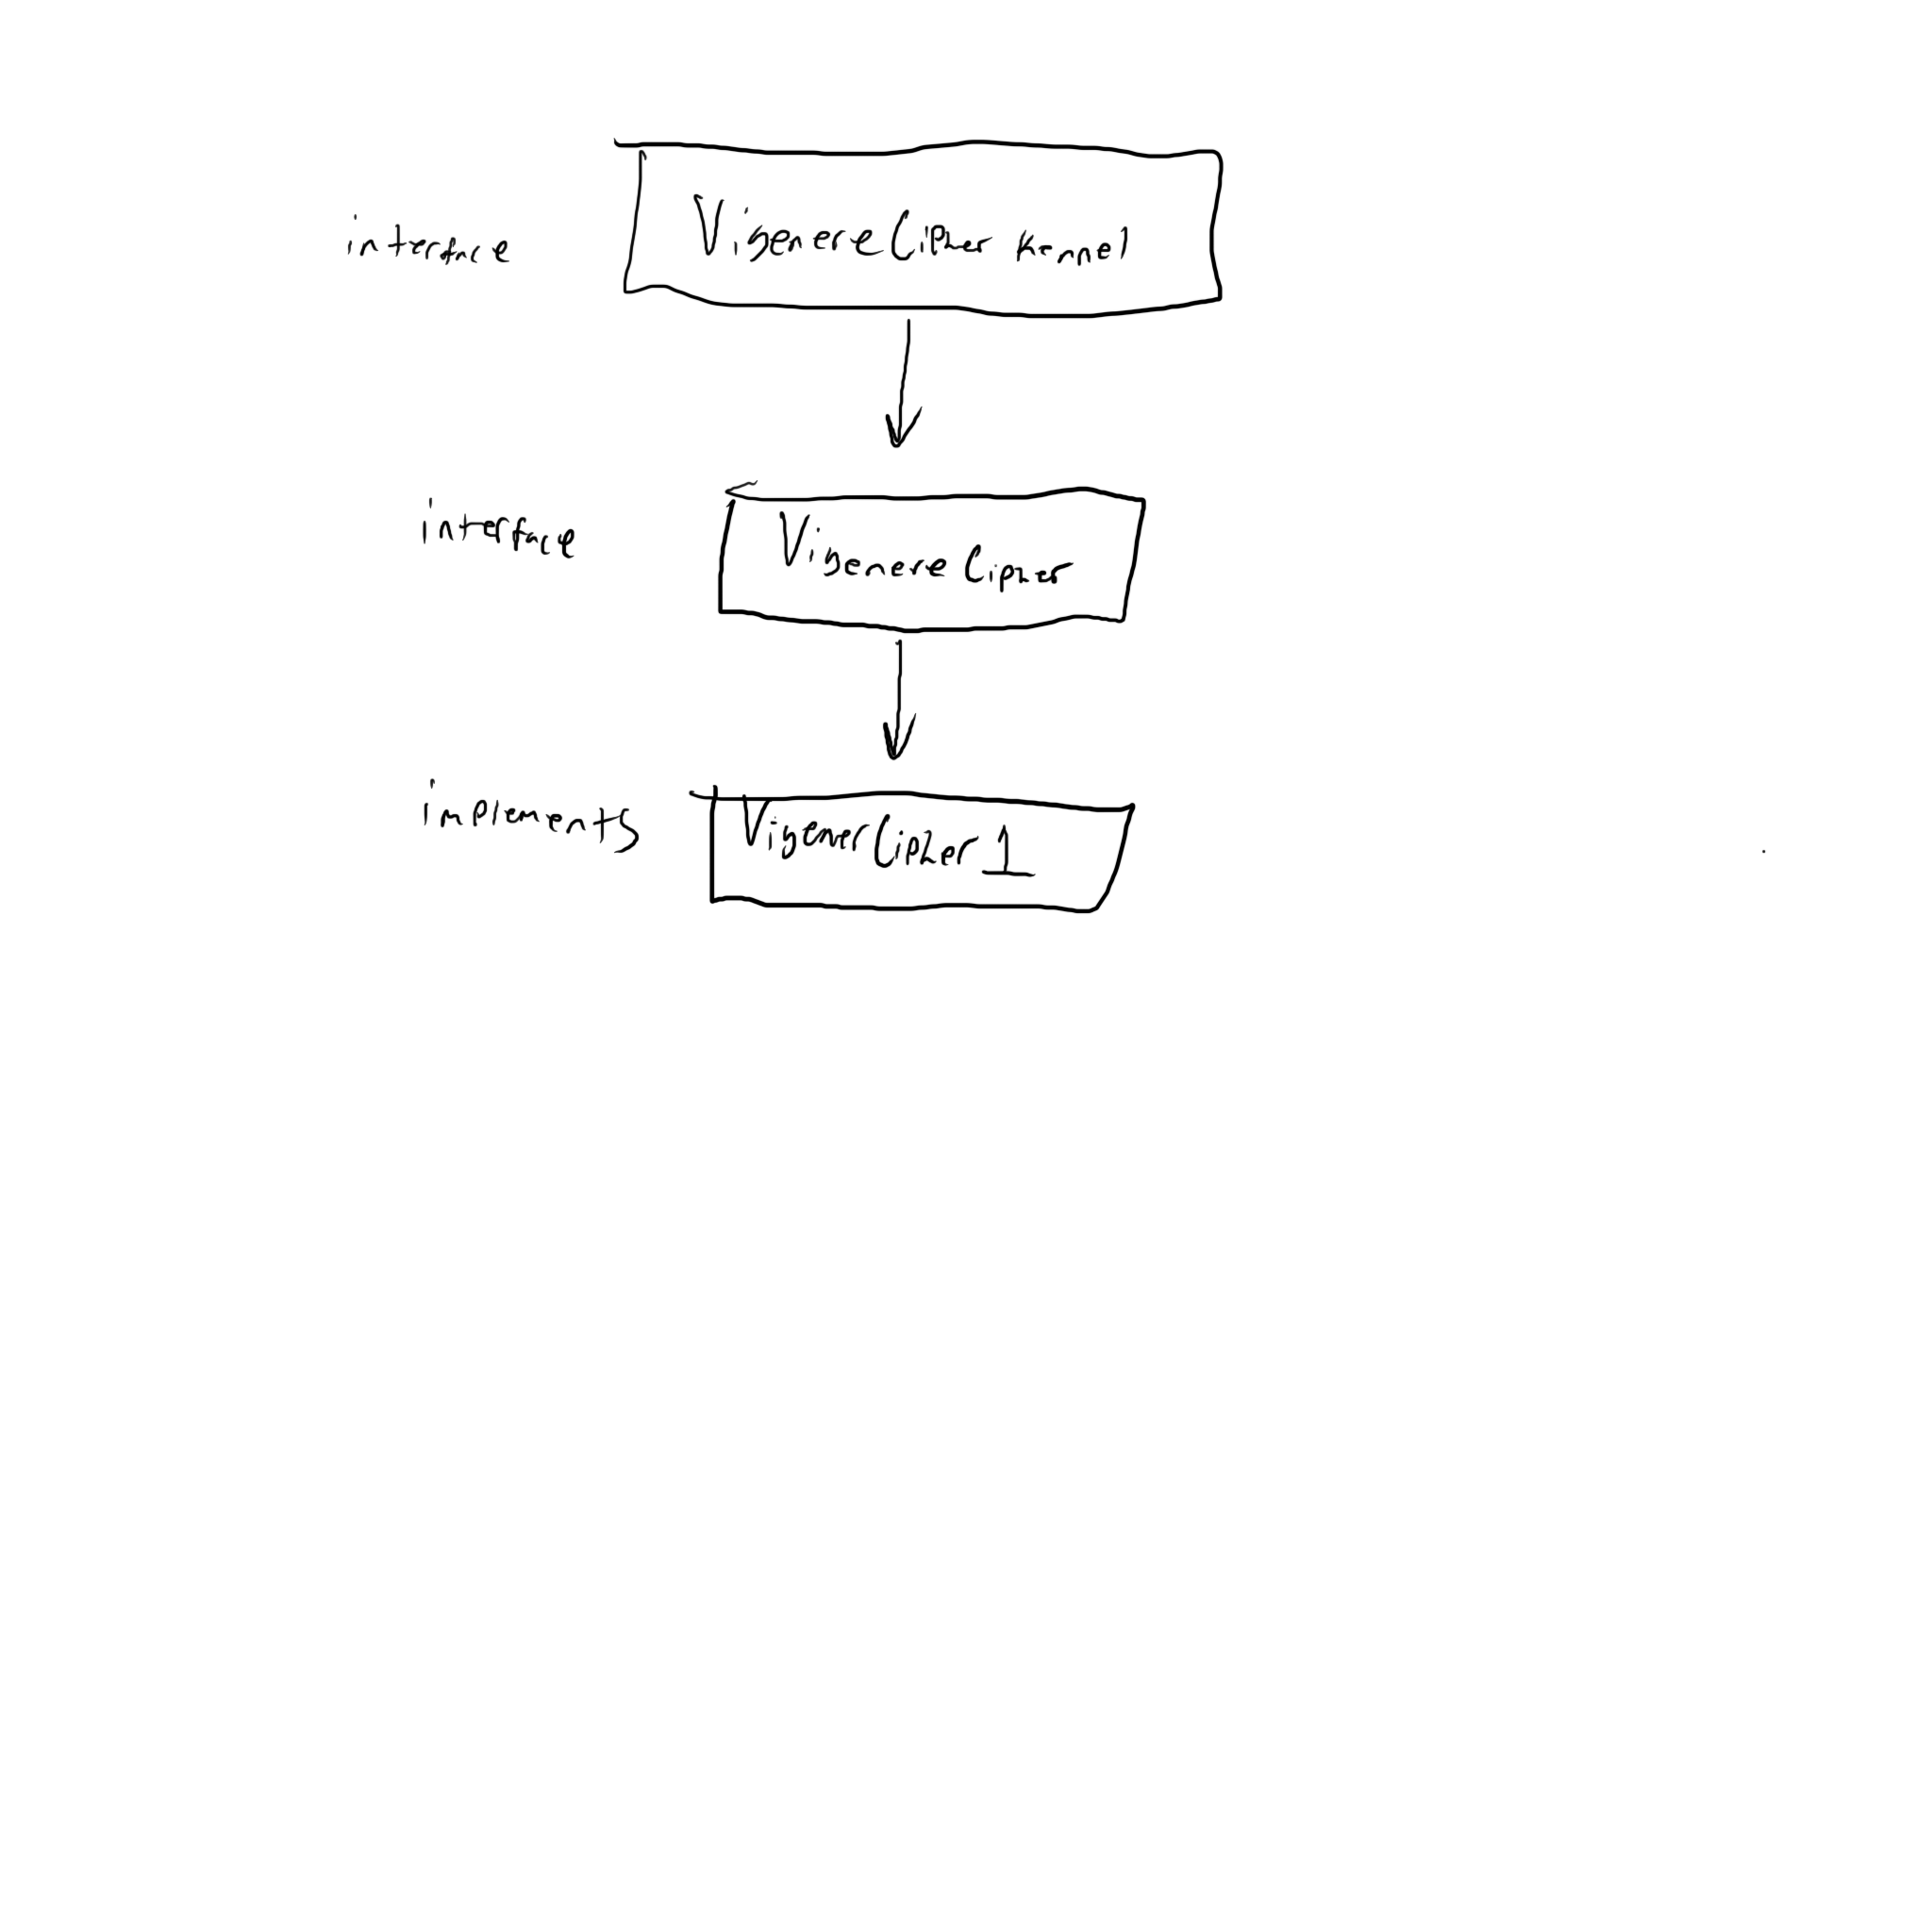 interface
VigenereCipher Kernel
interface
VigenereCipher
implements
VigenerCipher1